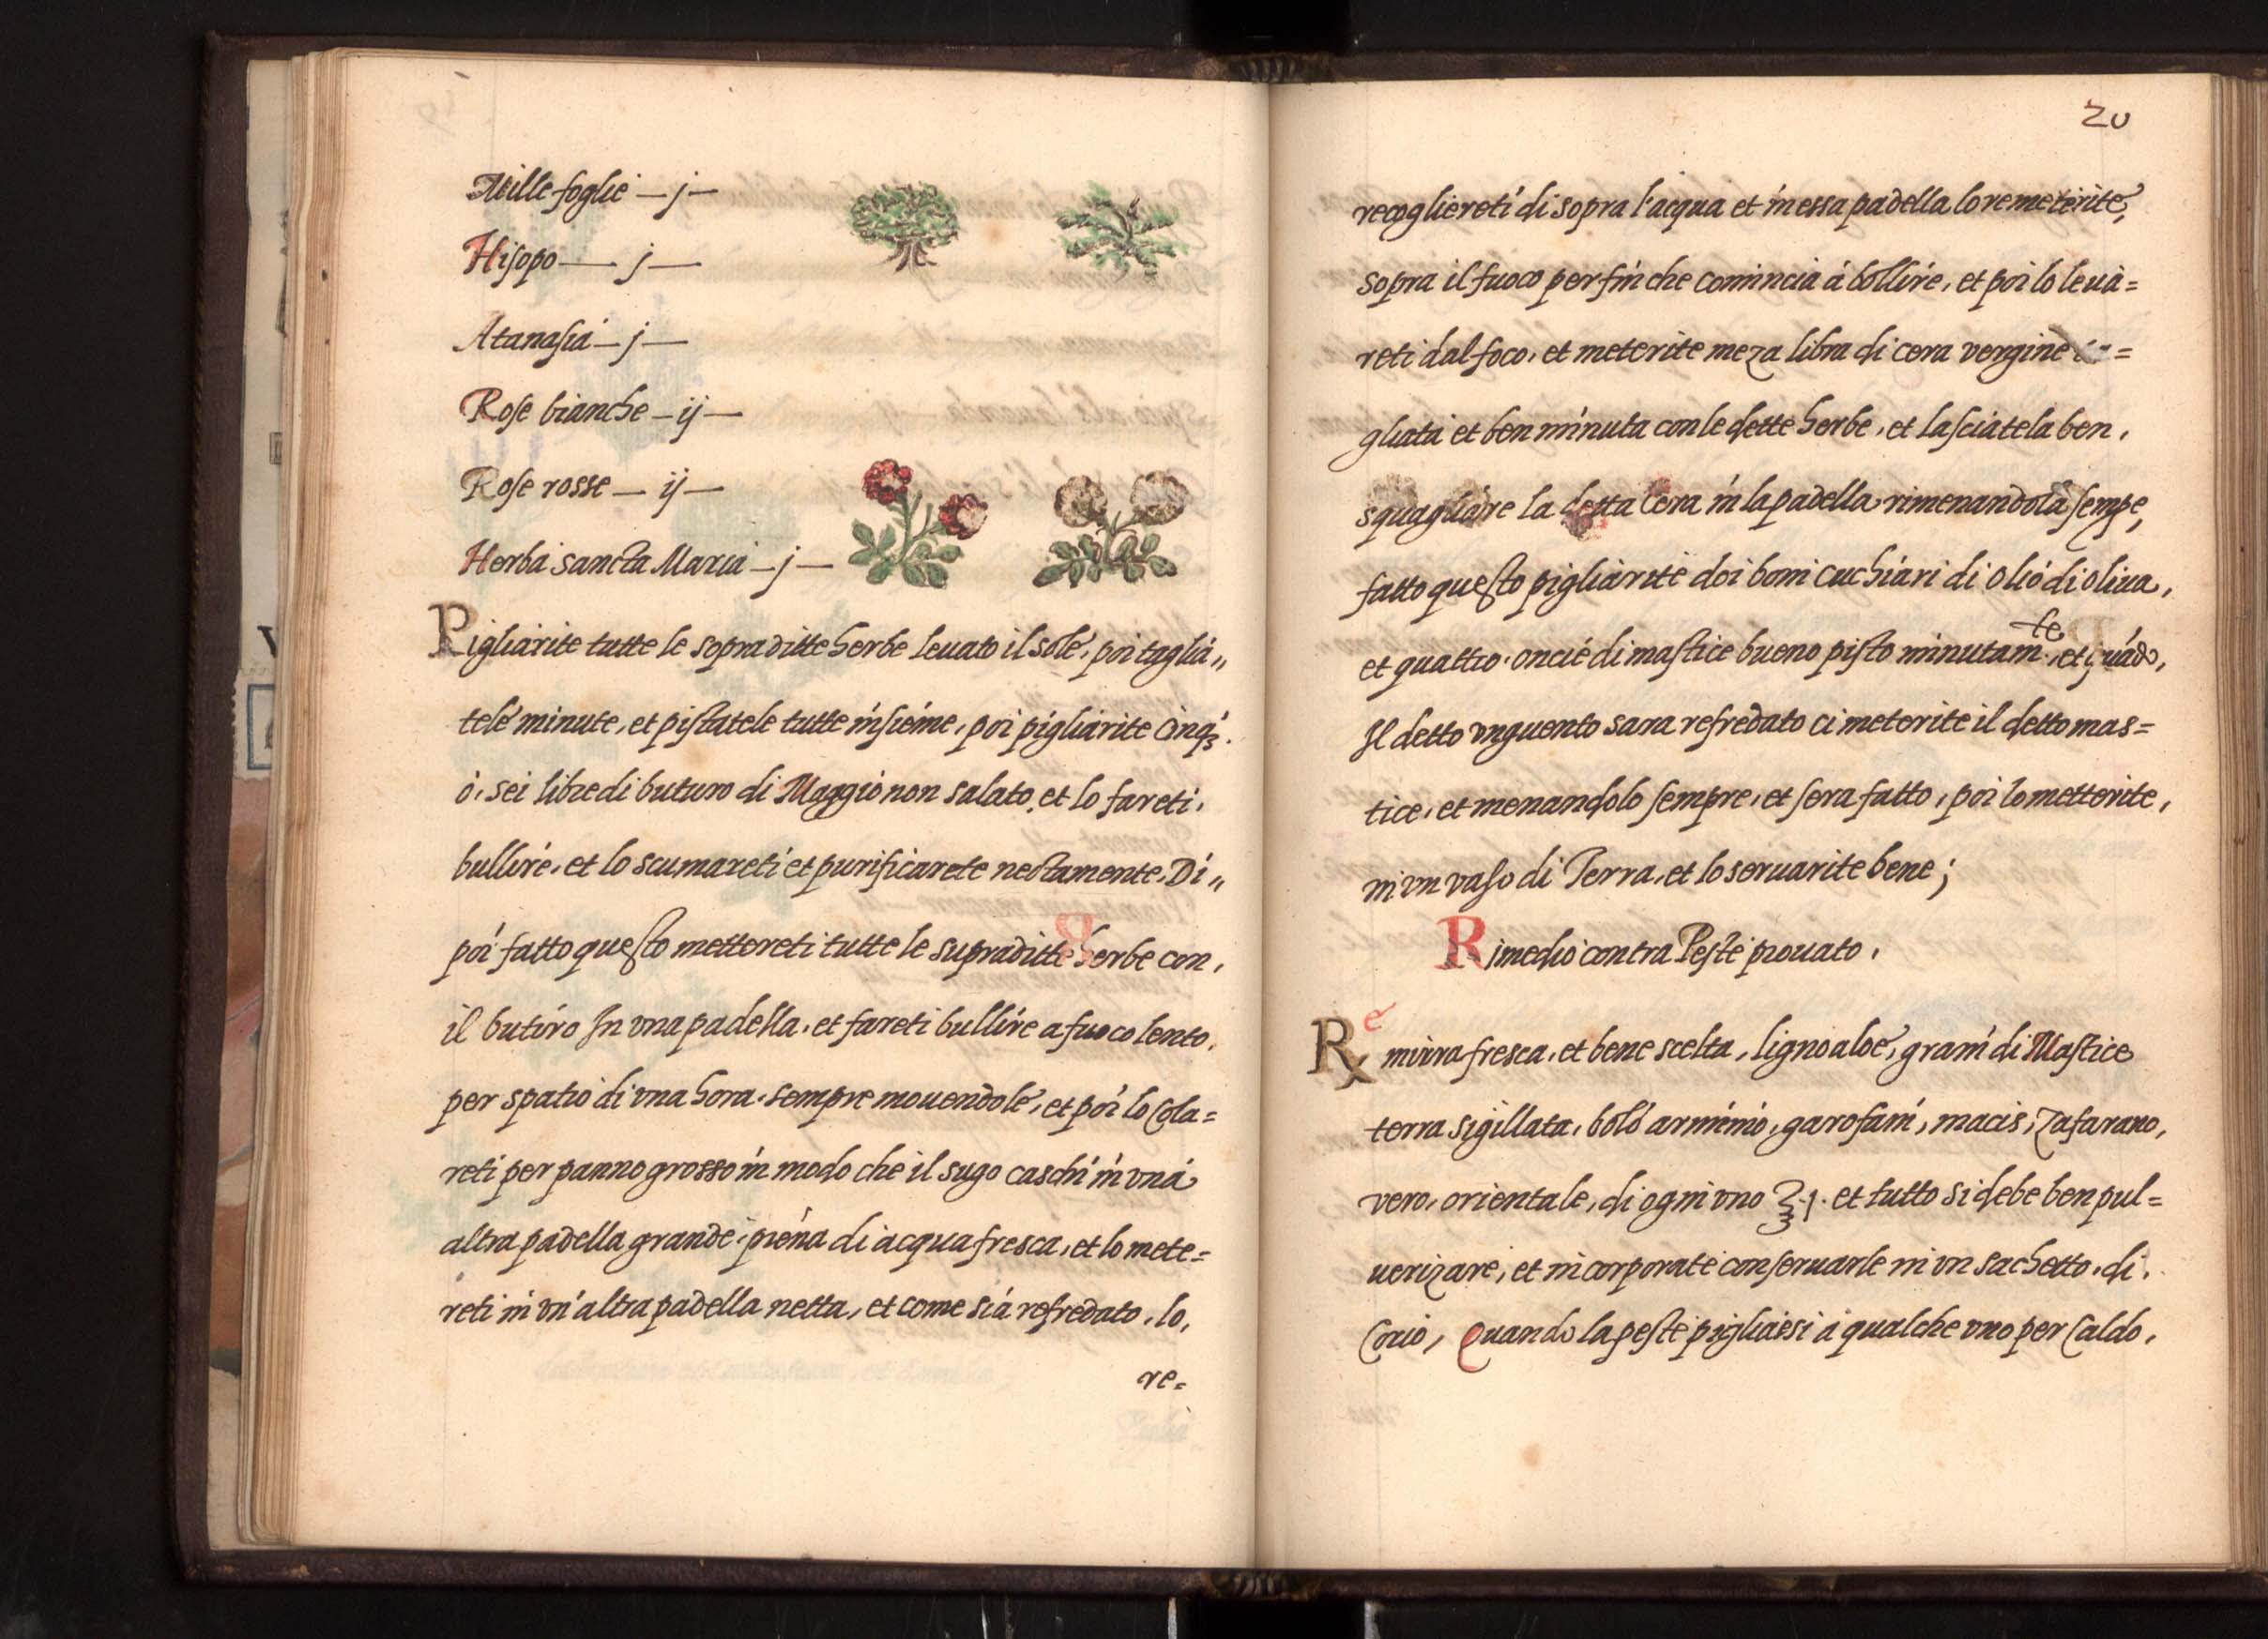 Mille foglie — j —
Hisopo — j —
Atanasia — j —
Rose bianche — ij —
Rose rosse — ij —
Herba sancta Maria — j —
Pigliarite tutte le sopraditte herbe leuato il sole, poi taglia„
tele minute, et pistatele tutte insieme, poi pigliarite Cinqꝫ.
ò, sei libre di buturo di Maggio non salato, et lo fareti,
bullire, et lo scumareti et purificarete nectamente, Di„
poi fatto questo mettereti tutte le supraditte herbe con,
il butiro In una padella, et fareti bullire a fuoco lento,
per spatio di una hora, sempre mouendole, et poi lo Cola=
reti per panno grosso in modo che il sugo caschi in una
altra padella grande, piena di acqua fresca, et lo mete=
reti in un' altra padella netta, et come sia refredato, lo,
re=
20
recogliereti di sopra l'acqua et in essa padella lo remeterite,
sopra il fuoco per fin che comincia á bollire, et poi lo leua=
reti dal foco, et meterite meza libra di cera vergine =
gliata et ben minuta con le dette herbe, et lasciatela ben,
squagliare la detta Cera in la padella rimenandola sempe,
fatto questo pigliarite doi boni cuchiari di olio di oliua,
et quattro oncie di mastice bueno pisto minutam.te, et quádo,
Il detto unguento sara refredato ci meterite il detto mas=
tice, et menandolo sempre, et sera fatto, poi lo metterite,
in un vaso di Terra, et lo seruarite bene;
Rimedio contra Peste prouato,
Re mirra fresca, et bene scelta, ligno aloe, grani di Mastice
terra sigillata, bolo arminio, garofani, macis, Zafarano,
vero, orientale, di ogni uno ℥.1. et tutto si debe ben pul=
uerizare, et incorporate conseruarle in un sachetto, di,
Corio, Quando la peste pigliassi á qualche uno per Caldo,